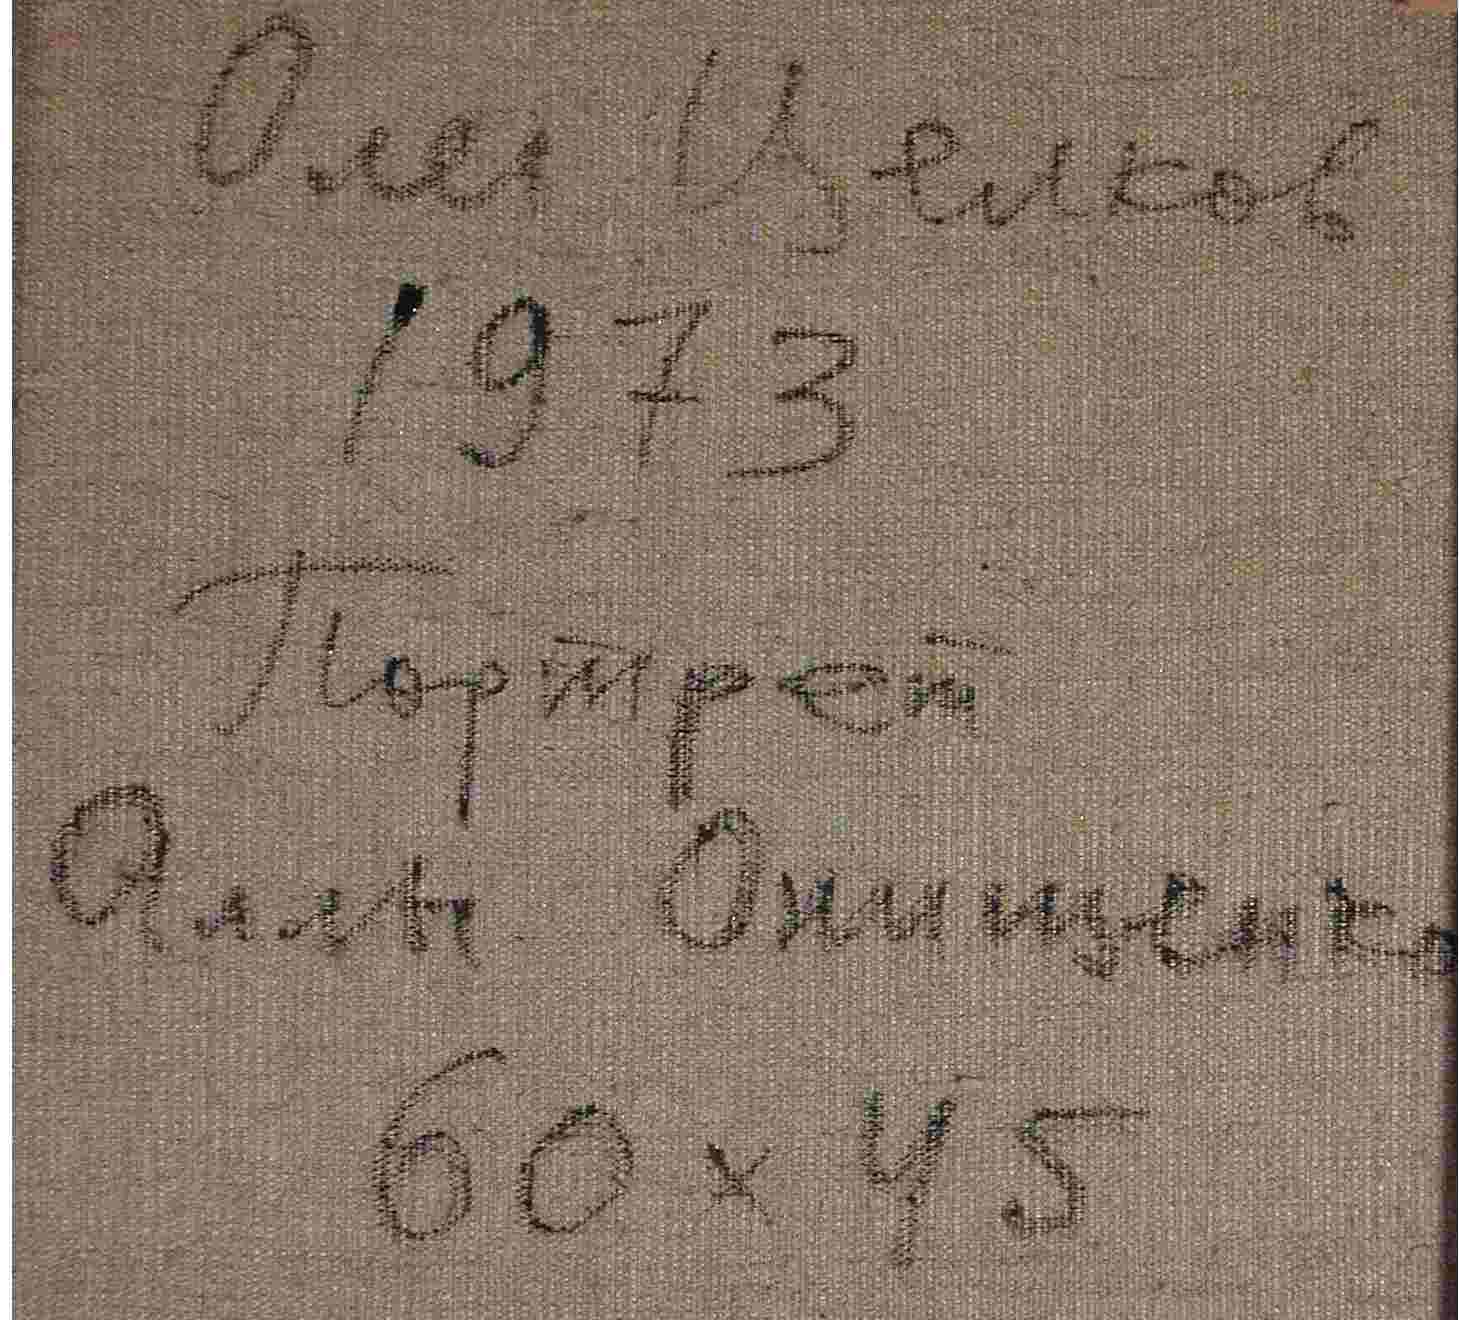 Олег Целков
1973
Портрет
Аллы Онищенко
60 x 45